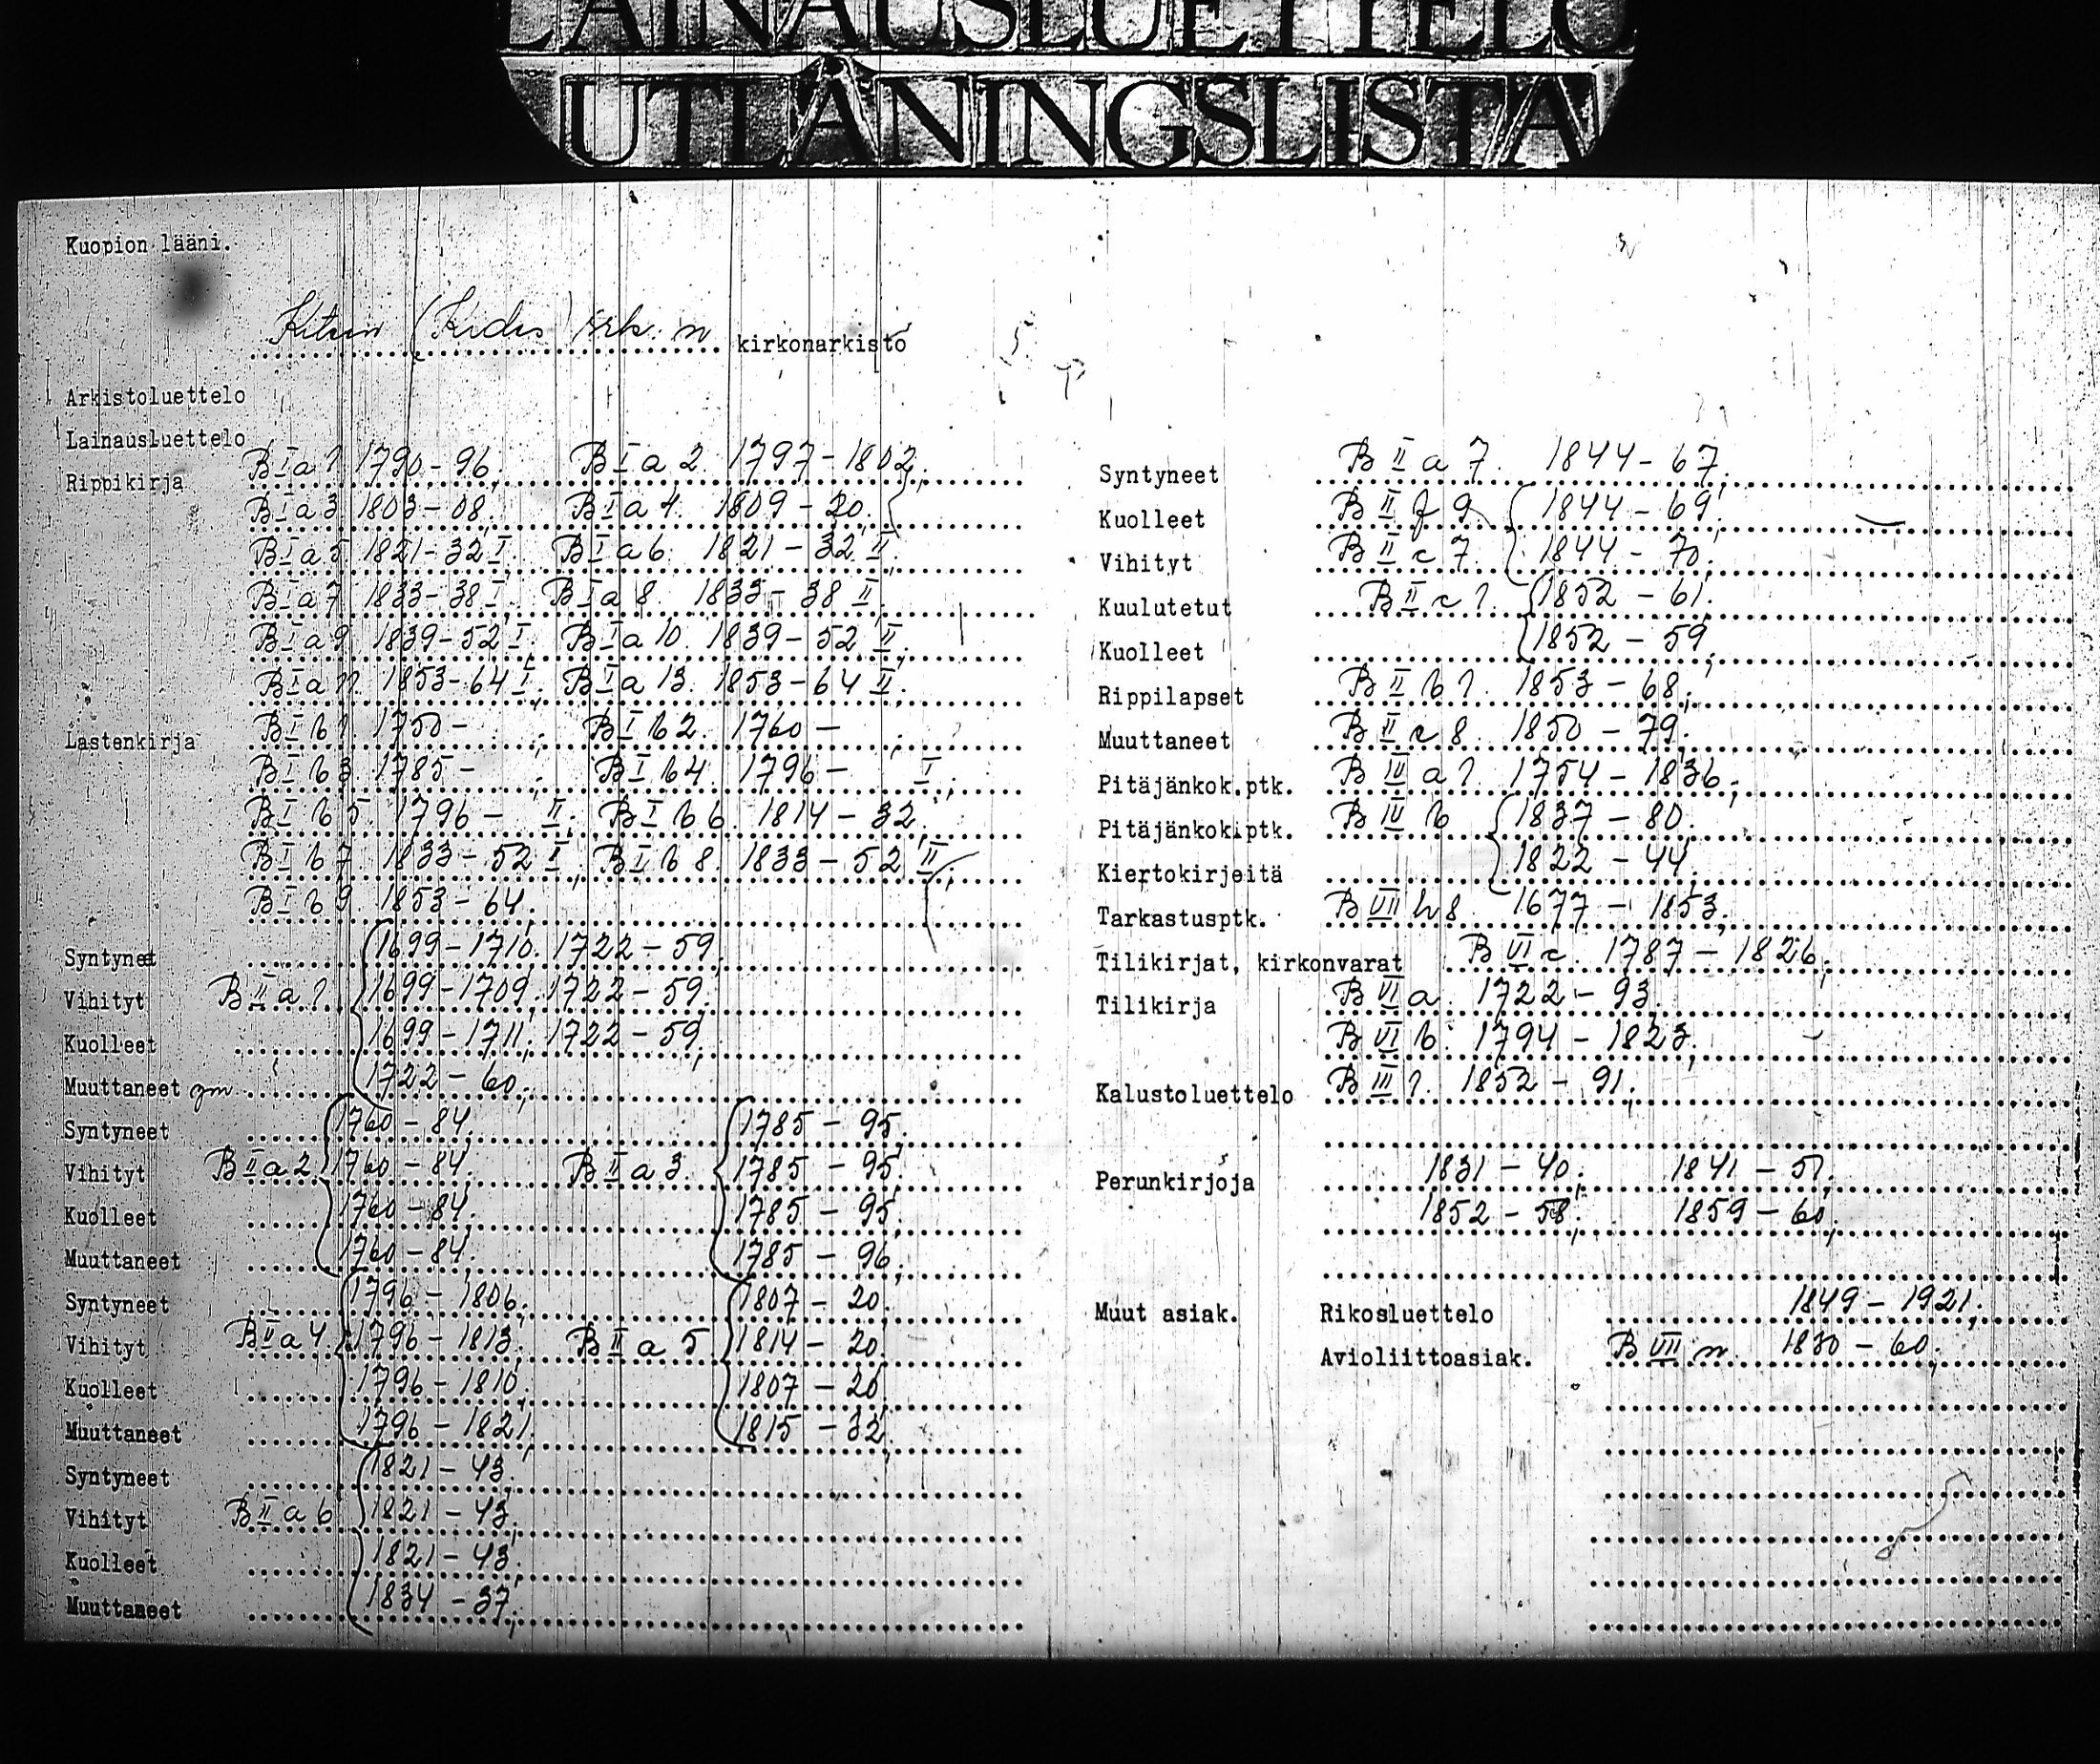 LAINAUSLUETTELO
UTLÅNINGSLISTA
Kuopion lääni.
Kiteen (Kides) srk:n kirkonarkisto
Arkistoluettelo
Lainausluettelo
Rippikirja B I a 1 1790-96, B I a 2. 1797-1802,
B I a 3 1803-08, B I a 4. 1809-20.
B I a 5 1821-32 I, B I a 6. 1821-32 II,
B I a 7 1833-38 I, B I a 8. 1833-38 II,
B I a 9 1839-52 I, B I a 10. 1839-52 II,
B I a 11. 1853-64 I, B I a 13. 1853-64 II.
Lastenkirja B I b 1. 1750- , B I b 2. 1760- ,
B I b 3. 1785- , B I b 4. 1796- I,
B I b 5. 1796- II, B I b 6. 1814-32,
B I b 7 1833-52 I, B I b 8. 1833-52 II,
B I b 9 1853-64,
Syntyneet 1699-1710, 1722-59,
Vihityt B II a 1. 1699-1709, 1722-59,
Kuolleet 1699-1711, 1722-59,
Muuttaneet ym 1722-60,
Syntyneet 1760-84, 1785-95,
Vihityt B II a 2. 1760-84, B II a 3. 1785-95,
Kuolleet 1760-84, 1785-95,
Muuttaneet 1760-84, 1785-96,
Syntyneet 1796-1806, 1807-20,
Vihityt B II a 4. 1796-1813, B II a 5. 1814-20,
Kuolleet 1796-1810, 1807-20,
Muuttaneet 1796-1821, 1815-32,
Syntyneet 1821-43,
Vihityt B II a 6 1821-43,
Kuolleet 1821-43,
Muuttaneet 1834-37,
Syntyneet B II a 7. 1844-67,
Kuolleet B II f 9. 1844-69,
Vihityt B II c 7. 1844-70,
Kuulutetut B II c 1. 1852-61.
Kuolleet 1852-59,
Rippilapset B II b 1. 1853-68,
Muuttaneet B II c 8. 1850-79.
Pitäjänkok.ptk. B IV a 1. 1754-1836,
Pitäjänkok.ptk. B IV b 1837-80.
Kiertokirjeitä 1822-44,
Tarkastusptk. B VII h 8 1677-1853,
Tilikirjat, kirkonvarat B VI c. 1787-1826,
Tilikirja B VI a. 1722-93.
B VI b. 1794-1823,
Kalustoluettelo B III 1. 1852-91.
Perunkirjoja 1831-40, 1841-51,
1852-58, 1859-60,
Muut asiak. Rikosluettelo 1849-1921,
Avioliittoasiak. B VII n. 1830-60,